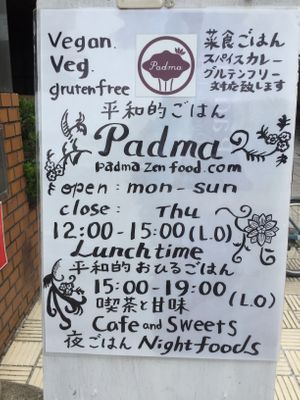 Vegan.
Veg.
grutenfree
Padma
菜食ごはん
スパイスカレー
グルテンフリー
対応致します
平和的ごはん
Padma
padma zen food.com
open : mon - sun
close : Thu
12:00 - 15:00 (L.O)
Lunchtime
平和的おひるごはん
15:00 - 19:00 (L.O)
喫茶と甘味
Cafe and Sweets
夜ごはん Nightfoods